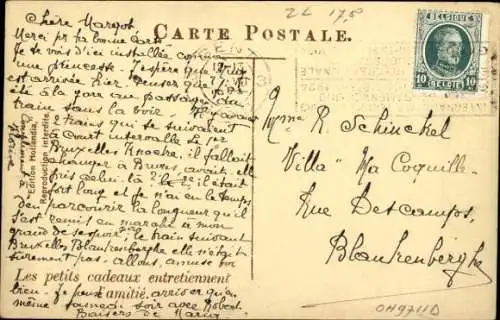 2L 17,5
CARTE POSTALE.
BELGIQUE
10 10
BELGIË
GENT
Chère Margot
Merci pr ta bonne carte
Je te vois d'ici installée comme
une princesse. J'espère que
est arrivée hier. Penses que j'ai
été à la gare au passage du
train sans la voir. Il y avait
2 trains qui se suivaient
à court intervalle. Le 1er
Bruxelles Knocke, il fallait
changer à Bruges, avait elle
pris celui là? le 2e il était
fort long et je n'ai eu le temps
de parcourir la longueur qu'il
s'est remis en marche à mon
grand desespoir. le train suivant
Bruxelles Blankenberghe elle n'était
sûrement pas, allons, amuse toi
Les petits cadeaux entretiennent
l'amitié.
bien. Je peux arriver qu'en
même samedi soir avec Robert
Baisers de Maria
Edition Hollandia
Reproduction interdite.
Mme R. Schinckel
Villa "Ma Coquille"
Rue Descamps
Blankenberghe
OH9711D